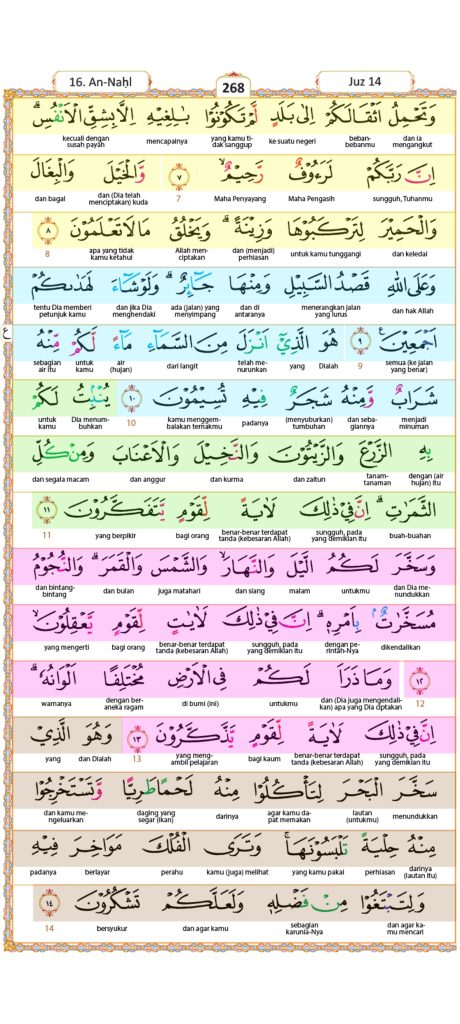 16. An-Naḥl
268
Juz 14
وَتَحْمِلُ اَثْقَالَكُمْ اِلٰى بَلَدٍ لَّمْ تَكُوْنُوْا بٰلِغِيْهِ اِلَّا بِشِقِّ الْاَنْفُسِۗ
dan ia mengangkut beban-bebanmu ke suatu negeri yang kamu tidak sanggup mencapainya kecuali dengan susah payah
اِنَّ رَبَّكُمْ لَرَءُوْفٌ رَّحِيْمٌۙ ٧ وَّالْخَيْلَ وَالْبِغَالَ
sungguh, Tuhanmu Maha Pengasih Maha Penyayang 7 dan (Dia telah menciptakan) kuda dan bagal
وَالْحَمِيْرَ لِتَرْكَبُوْهَا وَزِيْنَةًۗ وَيَخْلُقُ مَا لَا تَعْلَمُوْنَ ٨
dan keledai untuk kamu tunggangi dan (menjadi) perhiasan Allah menciptakan apa yang tidak kamu ketahui 8
وَعَلَى اللّٰهِ قَصْدُ السَّبِيْلِ وَمِنْهَا جَاۤىِٕرٌۗ وَلَوْ شَاۤءَ لَهَدٰىكُمْ
dan hak Allah menerangkan jalan yang lurus dan di antaranya ada (jalan) yang menyimpang dan jika Dia menghendaki tentu Dia memberi petunjuk kamu
ع
اَجْمَعِيْنَ ٩ هُوَ الَّذِيْٓ اَنْزَلَ مِنَ السَّمَاۤءِ مَاۤءً لَّكُمْ مِّنْهُ
semua (ke jalan yang benar) 9 Dialah yang telah menurunkan dari langit air (hujan) untuk kamu sebagian air itu
شَرَابٌ وَّمِنْهُ شَجَرٌ فِيْهِ تُسِيْمُوْنَ ١٠ يُنْۢبِتُ لَكُمْ
menjadi minuman dan sebagiannya (menyuburkan) tumbuhan padanya kamu menggembalakan ternakmu 10 Dia menumbuhkan untuk kamu
بِهِ الزَّرْعَ وَالزَّيْتُوْنَ وَالنَّخِيْلَ وَالْاَعْنَابَ وَمِنْ كُلِّ
dengan (air hujan) itu tanam-tanaman dan zaitun dan kurma dan anggur dan segala macam
الثَّمَرٰتِۗ اِنَّ فِيْ ذٰلِكَ لَاٰيَةً لِّقَوْمٍ يَّتَفَكَّرُوْنَ ١١
buah-buahan sungguh, pada yang demikian itu benar-benar terdapat tanda (kebesaran Allah) bagi orang yang berpikir 11
وَسَخَّرَ لَكُمُ الَّيْلَ وَالنَّهَارَۙ وَالشَّمْسَ وَالْقَمَرَۗ وَالنُّجُوْمُ
dan Dia menundukkan untukmu malam dan siang juga matahari dan bulan dan bintang-bintang
مُسَخَّرٰتٌۢ بِاَمْرِهٖۗ اِنَّ فِيْ ذٰلِكَ لَاٰيٰتٍ لِّقَوْمٍ يَّعْقِلُوْنَۙ
dikendalikan dengan perintah-Nya sungguh, pada yang demikian itu benar-benar terdapat tanda (kebesaran Allah) bagi orang yang mengerti
١٢ وَمَا ذَرَاَ لَكُمْ فِى الْاَرْضِ مُخْتَلِفًا اَلْوَانُهٗۗ
12 dan (Dia juga mengendalikan) apa yang Dia ciptakan untukmu di bumi (ini) dengan beraneka ragam warnanya
اِنَّ فِيْ ذٰلِكَ لَاٰيَةً لِّقَوْمٍ يَّذَّكَّرُوْنَ ١٣ وَهُوَ الَّذِيْ
sungguh, pada yang demikian itu benar-benar terdapat tanda (kebesaran Allah) bagi kaum yang mengambil pelajaran 13 dan Dialah yang
سَخَّرَ الْبَحْرَ لِتَأْكُلُوْا مِنْهُ لَحْمًا طَرِيًّا وَّتَسْتَخْرِجُوْا
menundukkan lautan (untukmu) agar kamu dapat memakan darinya daging yang segar (ikan) dan kamu mengeluarkan
مِنْهُ حِلْيَةً تَلْبَسُوْنَهَاۚ وَتَرَى الْفُلْكَ مَوَاخِرَ فِيْهِ
darinya (lautan itu) perhiasan yang kamu pakai kamu (juga) melihat perahu berlayar padanya
وَلِتَبْتَغُوْا مِنْ فَضْلِهٖ وَلَعَلَّكُمْ تَشْكُرُوْنَ ١٤
dan agar kamu mencari sebagian karunia-Nya dan agar kamu bersyukur 14